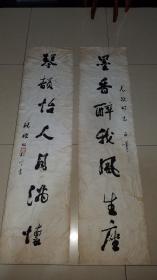 墨香醉我風生座
琴韻怡人月滿懷